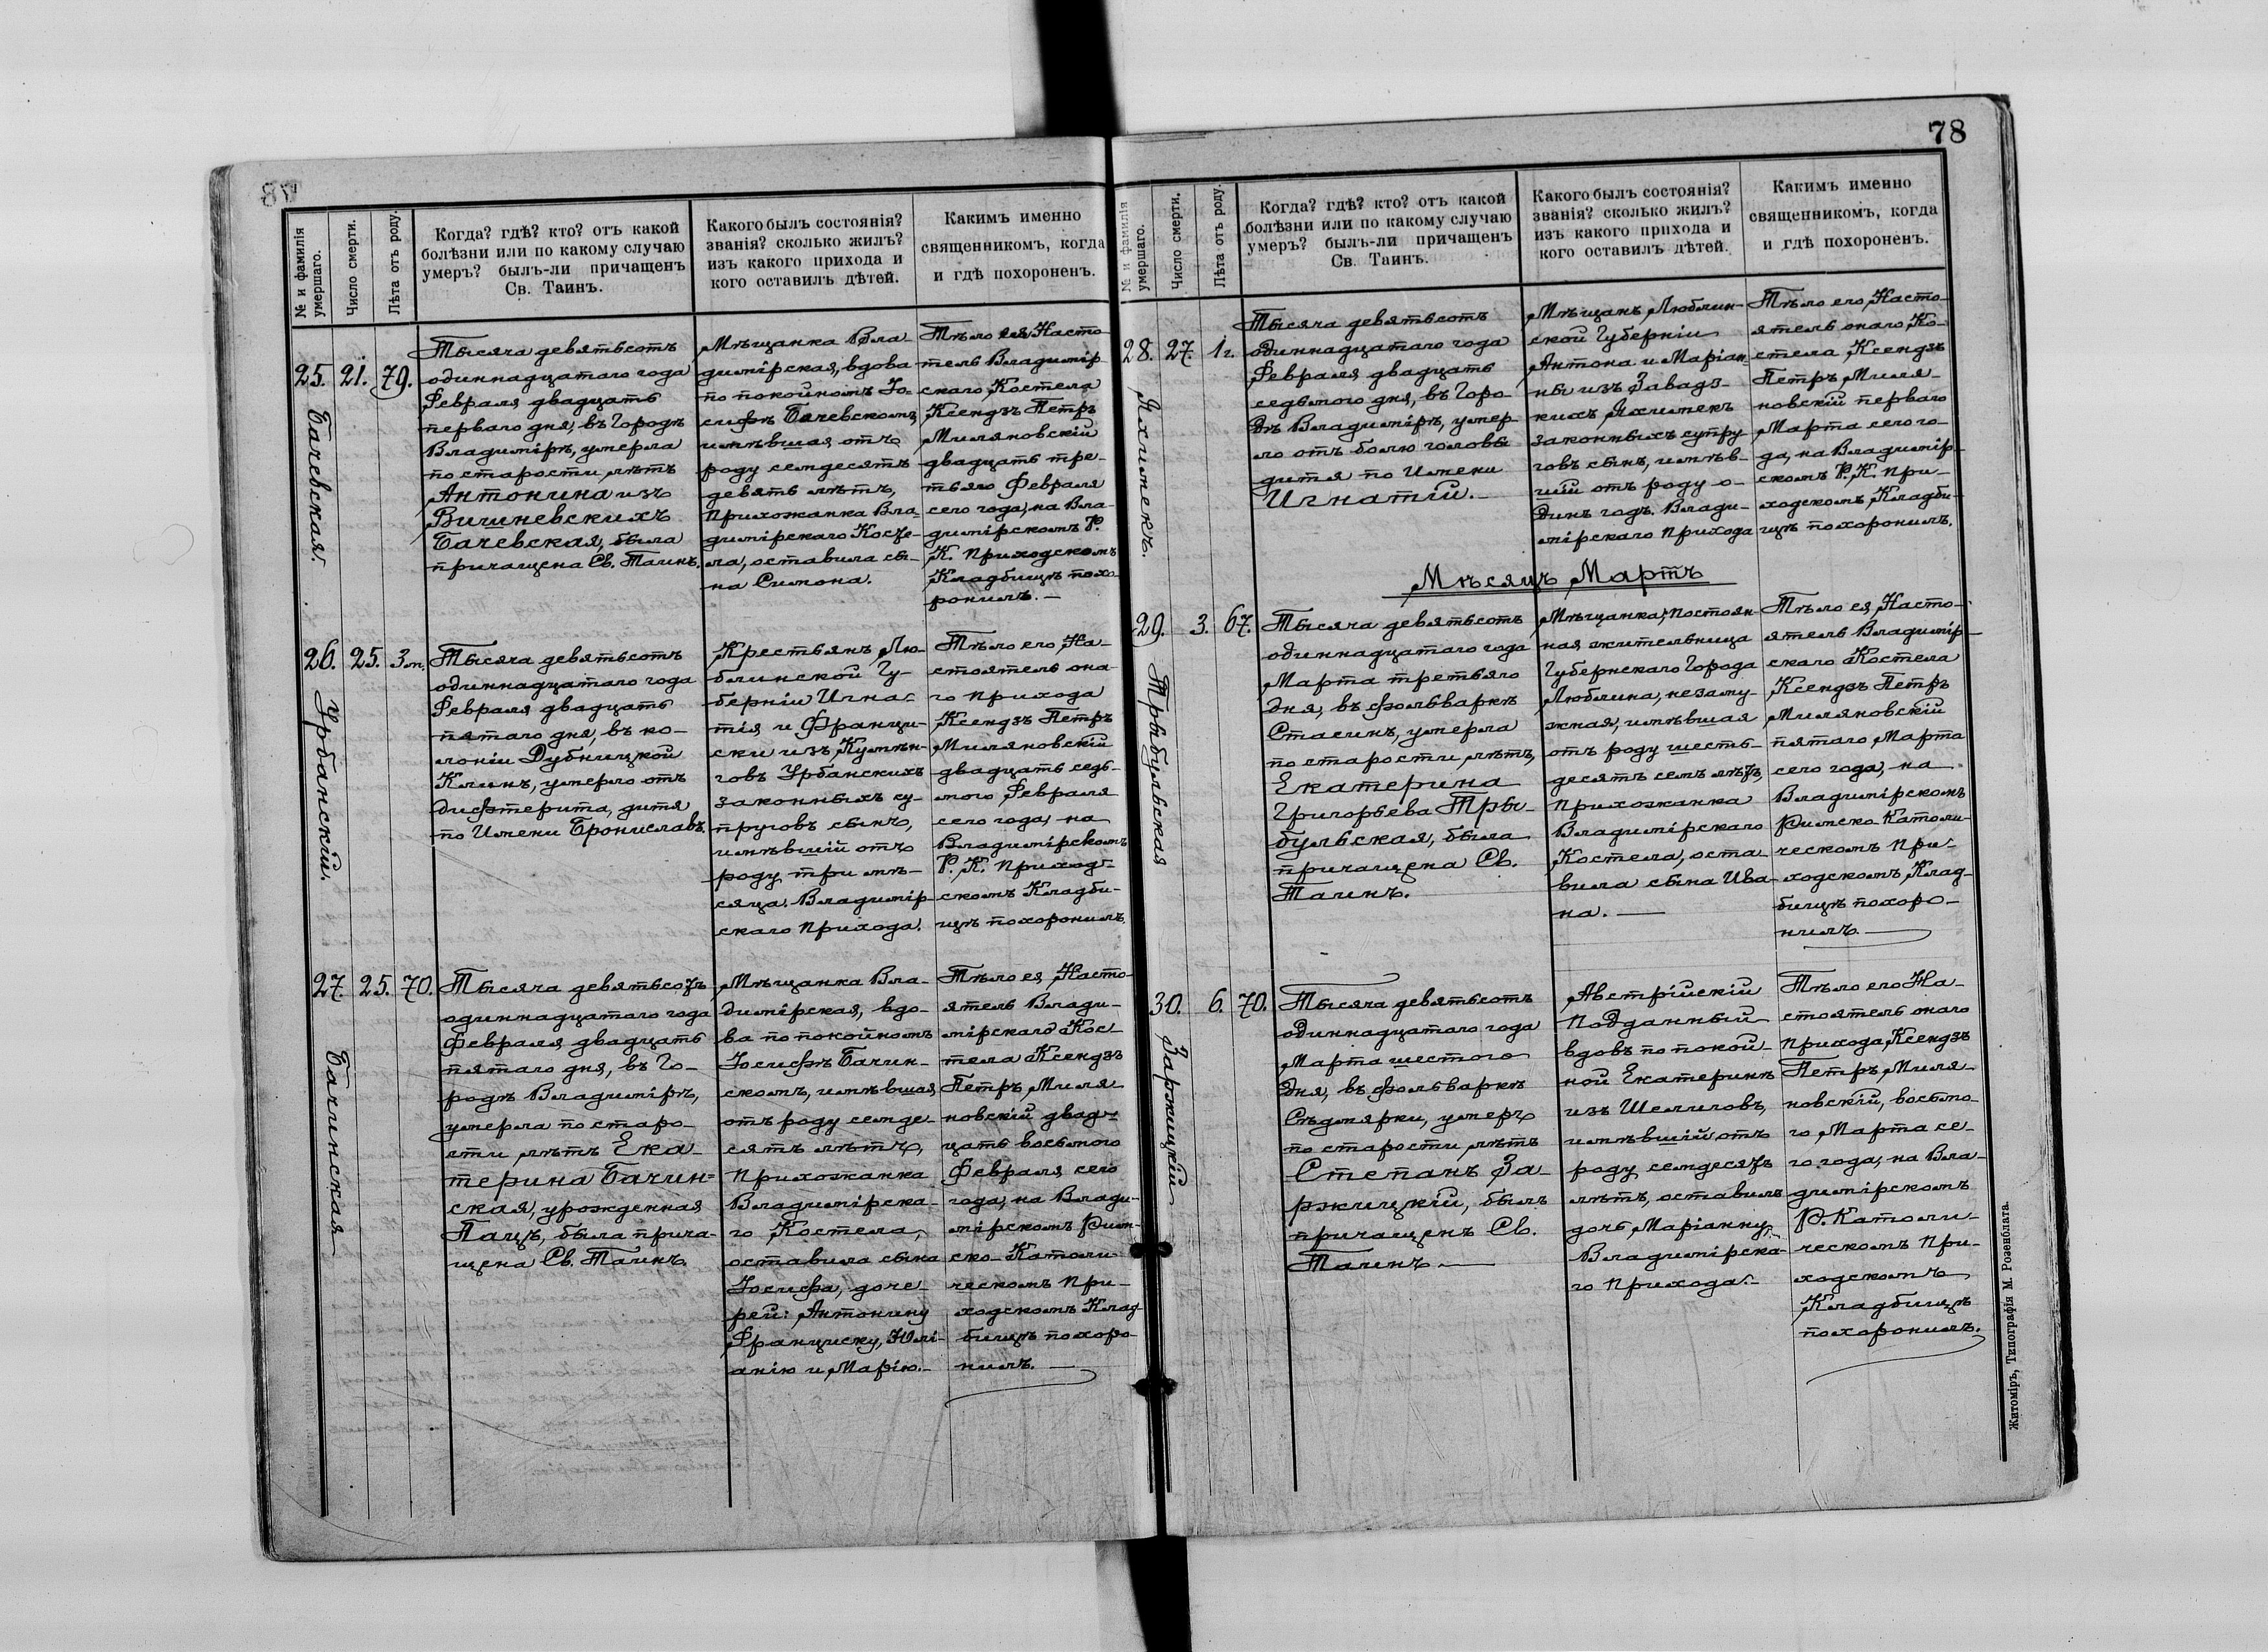 78
№ и фамилія умершаго.
Число смерти.
Лѣта отъ роду.
Когда? гдѣ? кто? отъ какой
болѣзни или по какому случаю
умеръ? былъ-ли причащенъ
Св. Таинъ.
Какого былъ состоянія?
званія? сколько жилъ?
изъ какого прихода и
кого оставилъ дѣтей.
Какимъ именно
священникомъ, когда
и гдѣ похороненъ.
25. 21. 79.
Бачевская.
Тысяча девятьсотъ
одиннадцатаго года
Февраля двадцать
перваго дня, въ Городѣ
Владимірѣ, умерла
по старости лѣтъ
Антонина изъ
Вишневскихъ
Бачевская, была
причащена Св. Таинъ.
Мѣщанка Вла
димірская, вдова
по покойномъ Іо-
сифѣ Бачевскомъ,
имѣвшая отъ
роду семдесятъ
девять лѣтъ,
Прихожанка Вла-
димірскаго Косте-
ла, оставила сы-
на Симона.
Тѣло ея, Насто
тель Владимір
скаго Костела
Ксендзъ Петръ
Миляновскій
двадцать тре-
тьяго Февраля
сего года, на Вла-
димірскомъ Р.
К. Приходскомъ
Кладбищѣ похо-
ронилъ.—
26. 25. 3 м.
Урбанскій.
Тысяча девятьсотъ
одиннадцатаго года
Февраля двадцать
пятаго дня, въ ко-
лоніи Дубницкой
Клинъ, умерло отъ
дифтерита, дитя
по Имени Брониславъ
Крестьянъ Лю-
блинской Гу-
берніи Игна-
тія и Францис-
ски изъ
говъ Урбанскихъ
законныхъ су-
пруговъ сынъ,
имѣвшій отъ
роду три мѣ-
сяца. Владимір
скаго прихода.
Тѣло его, На-
стоятель она-
го прихода
Ксендзъ Петръ
Миляновскій
двадцать седь-
мого Февраля
сего года, на
Владимірскомъ
Р. К. Приход-
скомъ Кладби-
щѣ похоронилъ.
27. 25. 70.
Бачинская
Тысяча девятьсотъ
одиннадцатаго года
Февраля двадцать
пятаго дня, въ Го-
родѣ Владимірѣ,
умерла по старо-
сти лѣтъ Ека-
терина Бачин-
ская, урожденная
Пацъ, была прича-
щена Св. Таинъ.
Мѣщанка Вла-
димірская, вдо-
ва по покойномъ
Іосифѣ Бачин-
скомъ, имѣвшая,
отъ роду семде-
сятъ лѣтъ,
Прихожанка
Владимірска-
го Костела,
оставила сына
Іосифа, доче-
рей: Антонину
Франциску, Юлі-
анію и Марію.—
Тѣло ея, Насто-
ятель Влади-
мірскаго Кос-
тела Ксендзъ
Петръ Миля-
новскій двад-
цать восьмого
Февраля сего
года, на Влади-
мірскомъ Рим-
ско-Католи-
ческомъ При-
ходскомъ Клад
бищѣ похоро-
нилъ.—
№ и фамилія умершаго.
Число смерти.
Лѣта отъ роду.
Когда? гдѣ? кто? отъ какой
болѣзни или по какому случаю
умеръ? былъ-ли причащенъ
Св. Таинъ.
Какого былъ состоянія?
званія? сколько жилъ?
изъ какого прихода и
кого оставилъ дѣтей.
Какимъ именно
священникомъ, когда
и гдѣ похороненъ.
28. 27. 1 г.
Яхимекъ.
Тысяча девятьсотъ
одиннадцатаго года
Февраля двадцать
седьмого дня, въ Горо-
дѣ Владимірѣ, умер
ло отъ болю головы
дитя по Имени
Игнатій.—
Мѣщанъ Люблин-
ской Губерніи
Антона и Маріан-
ны изъ Завадз-
кихъ Яхимекъ
законныхъ супру-
говъ сынъ, имѣв-
шій отъ роду о-
динъ годъ. Влади-
мірскаго Прихода
Тѣло его, Насто-
ятель онаго Ко-
стела, Ксендзъ
Петръ Миля-
новскій перваго
Марта сего го-
да, на Владимір-
скомъ Р. К. При-
ходскомъ Кладби-
щѣ похоронилъ.
Мѣсяцъ Мартъ
29. 3. 67.
Трыбульская
Тысяча девятьсотъ
одиннадцатаго года
Марта третьяго
дня, въ фольваркѣ
Стасинъ, умерла
по старости лѣтъ,
Екатерина
Григорьева Тры-
бульская, была
причащена Св.
Таинъ.
Мѣщанка, постоян-
ная жительница
Губернскаго Города
Люблина, незаму-
жная, имѣвшая
отъ роду шесть-
десятъ семь лѣтъ,
прихожанка
Владимірскаго
Костела, оста
вила сына Ива-
на.—
Тѣло ея, Насто-
ятель Владимір-
скаго Костела
Ксендзъ Петръ
Миляновскій
пятаго Марта
сего года, на
Владимірскомъ
Римско-Католи-
ческомъ При-
ходскомъ Клад-
бищѣ похоро-
нилъ.—
30. 6. 70.
Заржицкій
Тысяча девятьсотъ
одиннадцатаго года
Марта шестого
дня, въ фольваркѣ
Съдмярки, умеръ
по старости лѣтъ
Степанъ За-
ржицкій, былъ
причащенъ Св.
Таинъ.—
Австрійскій
подданный
вдовъ по покой-
ной Екатеринѣ
изъ Шелиговъ,
имѣвшій отъ
роду семдесятъ
лѣтъ, оставилъ
дочь Маріанну,
Владимірска-
го прихода.—
Тѣло его На-
стоятель онаго
прихода, Ксендзъ
Петръ Миля-
новскій, восьмо-
го Марта се-
го года, на Вла-
димірскомъ
Р. Католи-
ческомъ При-
ходскомъ
Кладбищѣ
похоронилъ.
Житоміръ, Типографія М. Розенблата.